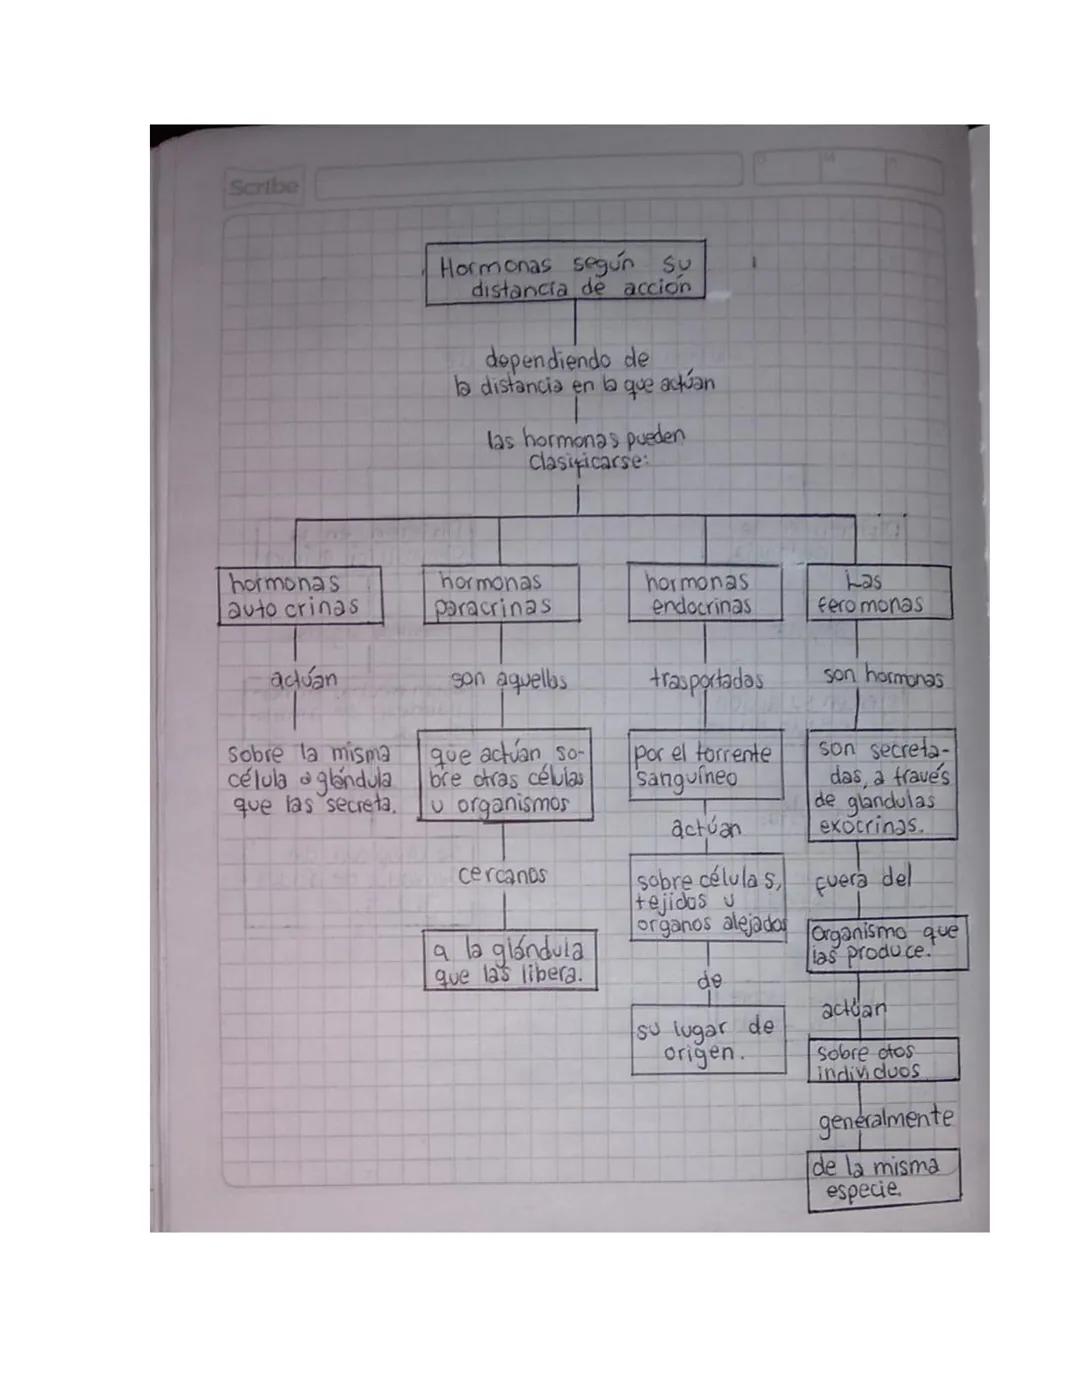 Scribe
D M A
Hormonas según su
distancia de acción
dependiendo de
la distancia en la que actúan
las hormonas pueden
clasificarse:
hormonas
auto crinas
actúan
sobre la misma
célula o glándula
que las secreta.
hormonas
paracrinas
son aquellas
que actúan so-
bre otras células
u organismos
cercanos
a la glándula
que las libera.
hormonas
endocrinas
trasportadas
por el torrente
sanguíneo
actúan
sobre células,
tejidos u
organos alejados
de
su lugar de
origen.
Las
feromonas
son hormonas
son secreta-
das, a través
de glandulas
exocrinas.
fuera del
organismo que
las produce.
actúan
sobre otos
individuos
generalmente
de la misma
especie.